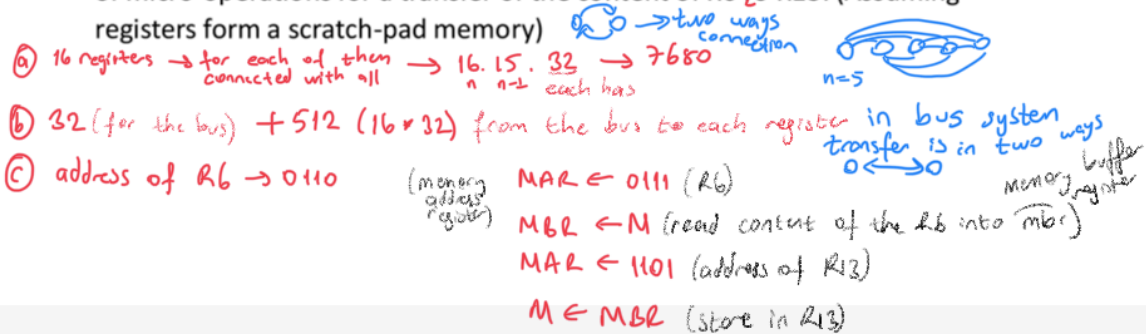 registers form a scratch-pad memory)
→ two ways connection
ⓐ 16 registers → for each of them connected with all → 16. 15. 32 → 7680
n n-1 each has
n=5
ⓑ 32 (for the bus) + 512 (16 * 32) from the bus to each register
in bus system transfer is in two ways
ⓒ address of R6 → 0110
(memory address register)
MAR ← 0111 (R6)
MBR ← M (read content of the R6 into mbr)
memory buffer register
MAR ← 1101 (address of R13)
M ← MBR (store in R13)